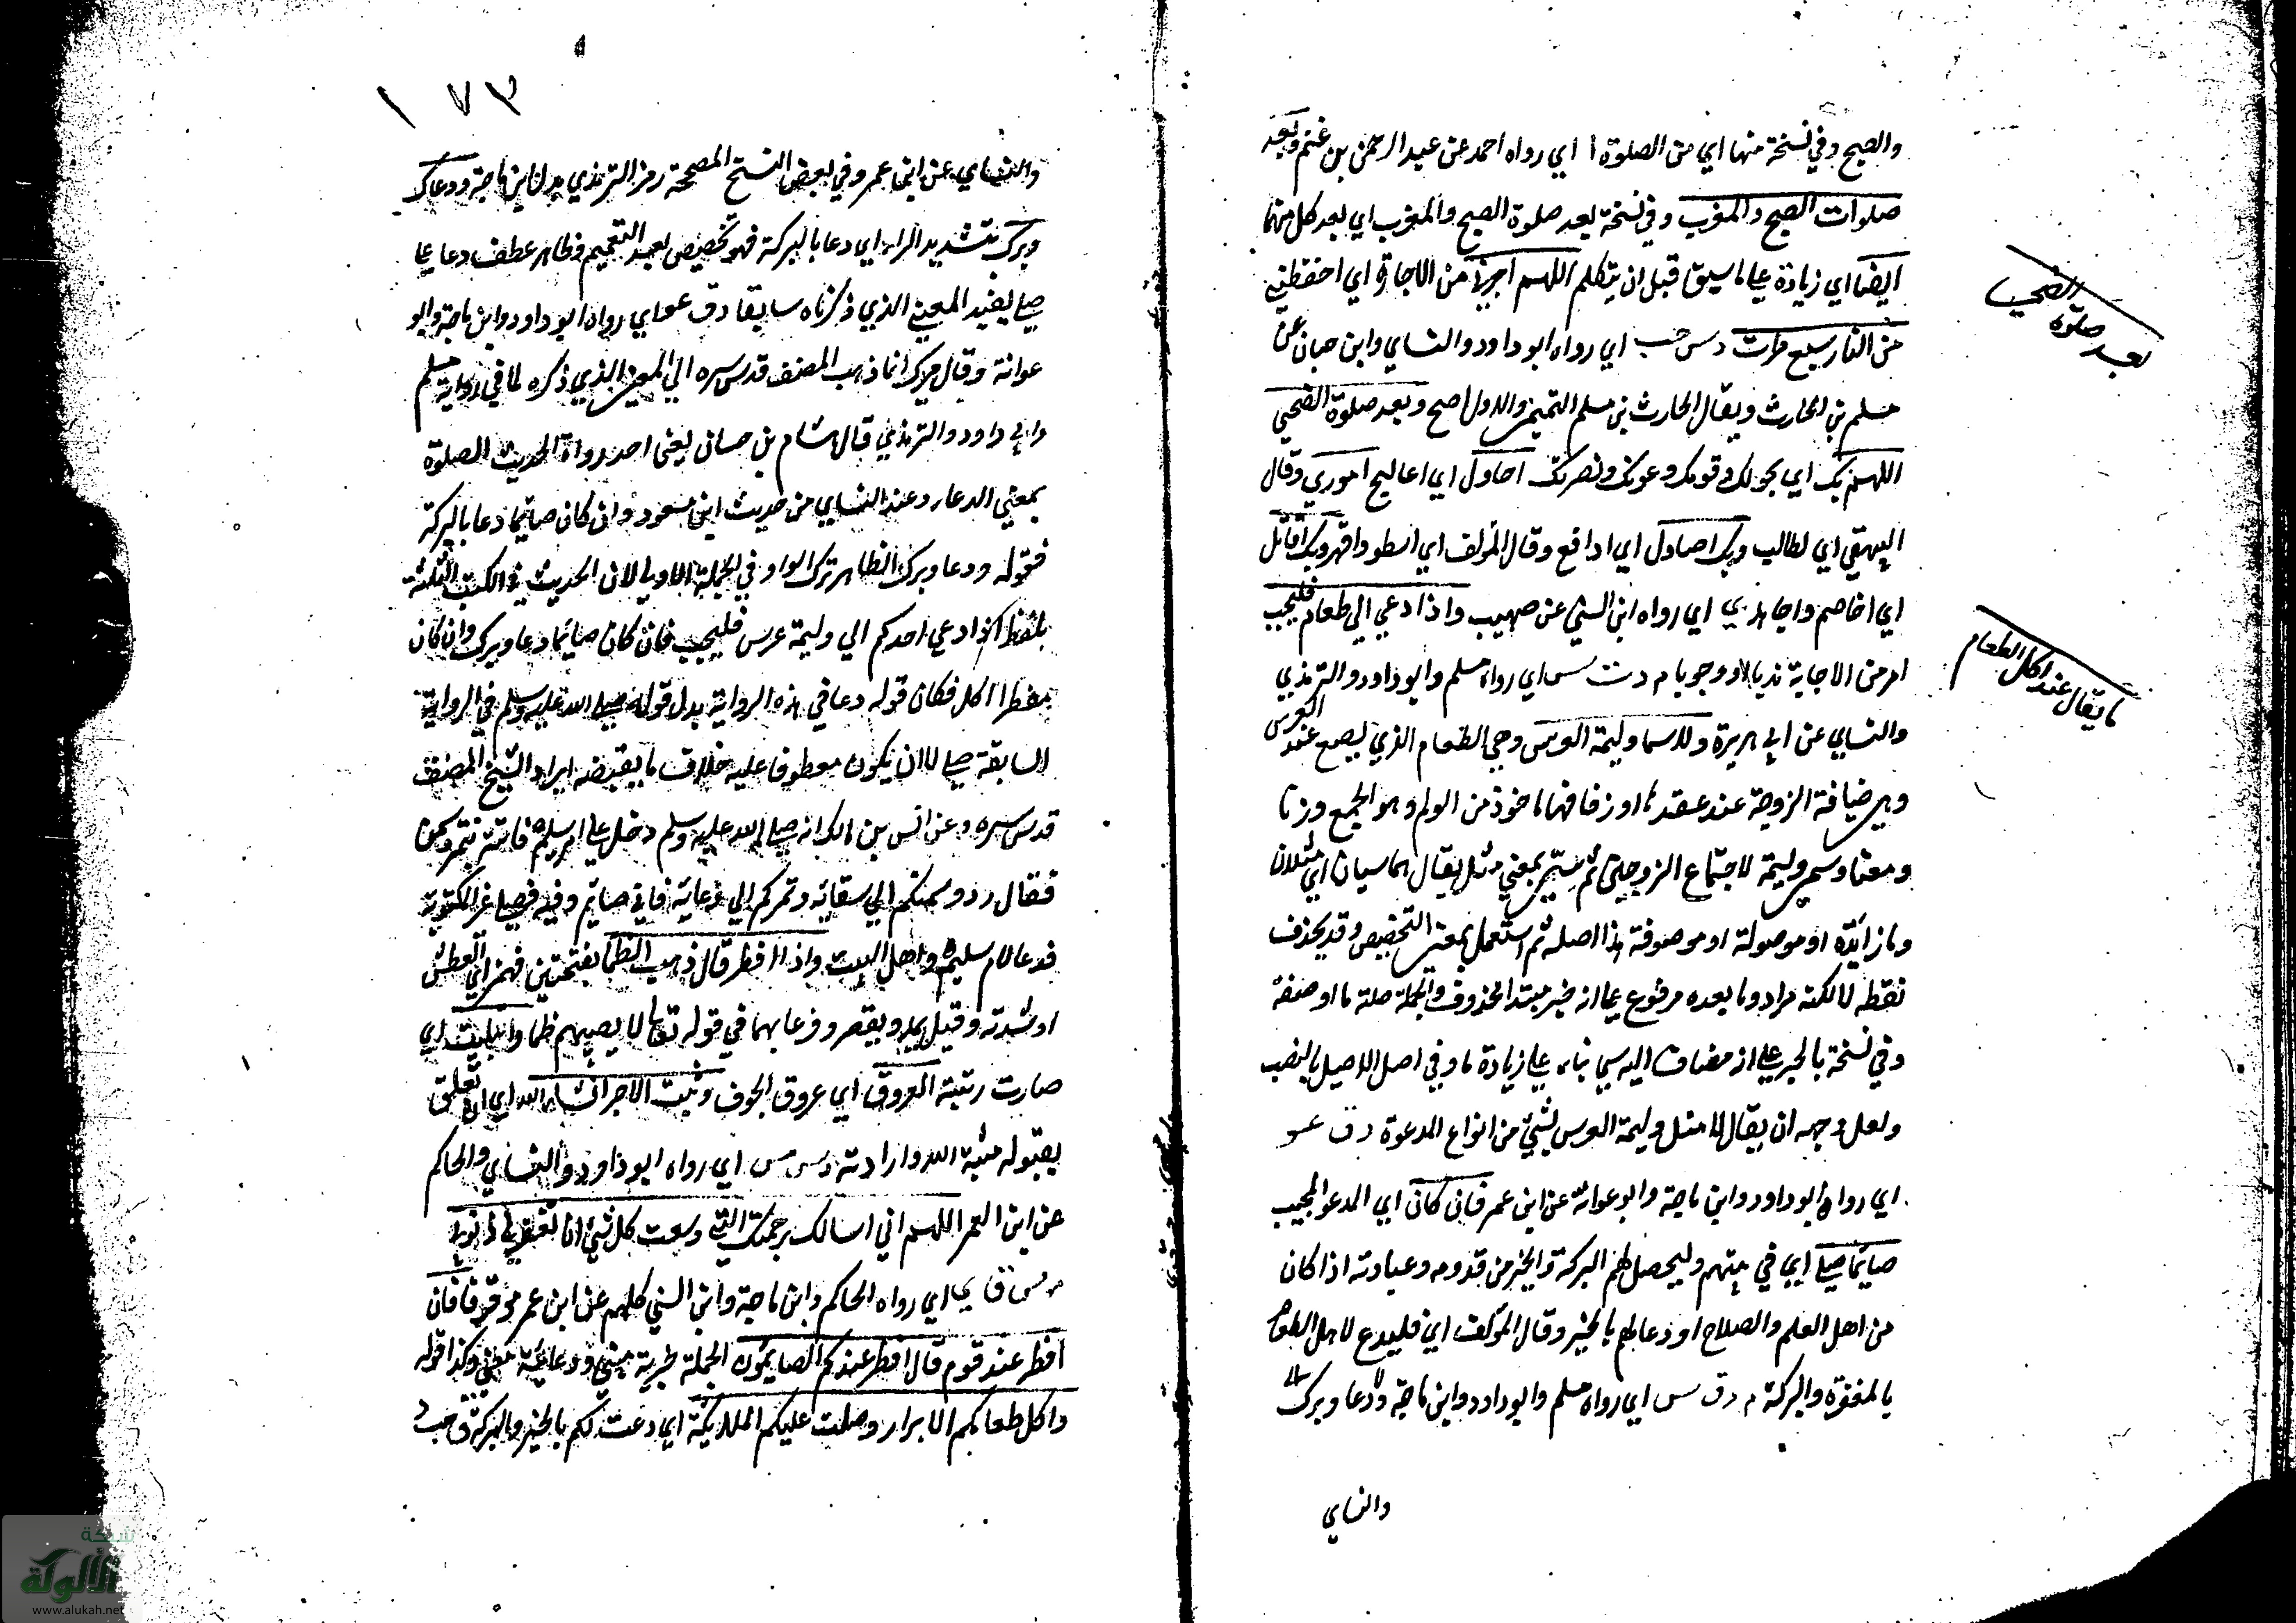 والصبح وفي نسخة منها اي من الصلوة ا اي رواه احمد عن عبد الرحمن بن غنم وبعد
صلوات الصبح والمغرب وفي نسخة بعد صلوة الصبح والمغرب اي بعد كل منهما
ايضا اي زيادة علي ما سبق قبل ان يتكلم اللهم اجرني من الاجارة اي احفظني
من النار سبع مرات د س حب اي رواه ابو داود والنساي وابن حبان عن
مسلم بن الحارث ويقال الحارث بن مسلم التميمي والاول اصح وبعد صلوة الضحي
اللهم بك اي بحولك وقوتك وعونك ونصرتك احاول اي اعالج اموري وقال
البيهقي اي اطالب وبك اصاول اي ادافع وقال المؤلف اي اسطو واقهر وبك اقاتل
اي اخاصم واجاهد ي اي رواه ابن السني عن صهيب واذا دعي الي طعام فليجب
امر من الاجابة ندبا او وجوبا م د ت س اي رواه مسلم وابو داود والترمذي
والنساي عن ابي هريرة ولا سيما وليمة العرس وهي الطعام الذي يصنع عند العرس
وهي ضيافة الزوجة عند عقدها او زفافها ماخوذ من الولم وهو الجمع وزنا
ومعنا وسمي وليمة لاجتماع الزوجين ثم سيّ بمعني مثل يقال هما سيان اي مثلان
وما زائدة او موصولة او موصوفة هذا اصله ثم استعمل بمعني التخصيص وقد يحذف
لفظه لا لكنه مراد وما بعده مرفوع علي انه خبر مبتدا محذوف والجملة صلة ما او صفة
وفي نسخة بالجر علي انه مضاف اليه سي بناء علي زيادة ما وفي اصل الاصيل بالنصب
ولعل وجهه ان يقال لا مثل وليمة العرس بشئ من انواع الدعوة د ق عو
اي رواه ابو داود وابن ماجة وابو عوانة عن ابن عمر فان كان اي المدعو المجيب
صايما صلي اي في بيتهم وليحصل لهم البركة والخير من قدومه وعبادته اذا كان
من اهل العلم والصلاح او دعا لهم بالخير وقال المؤلف اي فليدع لاهل الطعام
بالمغفرة والبركة م د ق س اي رواه مسلم وابو داود وابن ماجة ودعا وبرك
والنساي
بعد صلوة الضحي
ما يقال عند اكل الطعام
١٧٣
والنساي عن ابن عمر وفي بعض النسخ المصححة رمز الترمذي بدل ابن ماجة ودعا ك
وبرك بتشديد الراء اي دعا بالبركة فهو تخصيص بعد التعميم وظاهر عطف دعا علي
صلي يفيد المعني الذي ذكرناه سابقا د ق عو اي رواه ابو داود وابن ماجة وابو
عوانة وقال ميرك انما ذهب المصنف قدس سره الي المعني الذي ذكره لما في رواية مسلم
وابي داود والترمذي قال هشام بن حسان يعني احد رواة الحديث الصلوة
بمعني الدعاء وعند النساي من حديث ابن مسعود وان كان صايما دعا بالبركة
فقوله ودعا وبرك الظاهر ترك الواو في الجملة الاولي لان الحديث في الكتب الثلثة
بلفظ اذا دعي احدكم الي وليمة عرس فليجب فان كان صايما دعا وبرك وان كان
مفطرا اكل فكان قوله دعا في هذه الرواية بدل قوله صلي الله عليه وسلم في الرواية
السابقة صلي لا ان يكون معطوفا عليه خلاف ما يقتضه ايراد الشيخ المصنف
قدس سره وعن انس بن مالك انه صلي الله عليه وسلم دخل علي ام سليم فاتته بتمر وسمن
فقال ردوا سمنكم الي سقائه وتمركم الي وعائه فاني صايم وفيه فصلي غير المكتوبة
فدعا لام سليم واهل البيت واذا افطر قال ذهب الظما بفتحتين فهمز اي العطش
او شدته وقيل يمد ويقصر وقرئ بهما في قوله تعالي لا يصيبهم ظما وابتلت اي
صارت رتبة العروق اي عروق الجوف وثبت الاجر ان شاء الله اي ان تعلق
بقبوله مشية الله وارادته د س مس اي رواه ابو داود والنساي والحاكم
عن ابن العمر اللهم اني اسالك برحمتك التي وسعت كل شئ ان تغفر لي ذنوبي
مس ق ي اي رواه الحاكم وابن ماجة وابن السني كلهم عن ابن عمر موقوفا فان
افطر عند قوم قال افطر عندكم الصايمون الجملة خبرية مبني ودعائية معني وكذا قوله
واكل طعامكم الابرار وصلت عليكم الملايكة اي دعت لكم بالخير والبركة ق حب د
شبكة
الألوكة
www.alukah.net